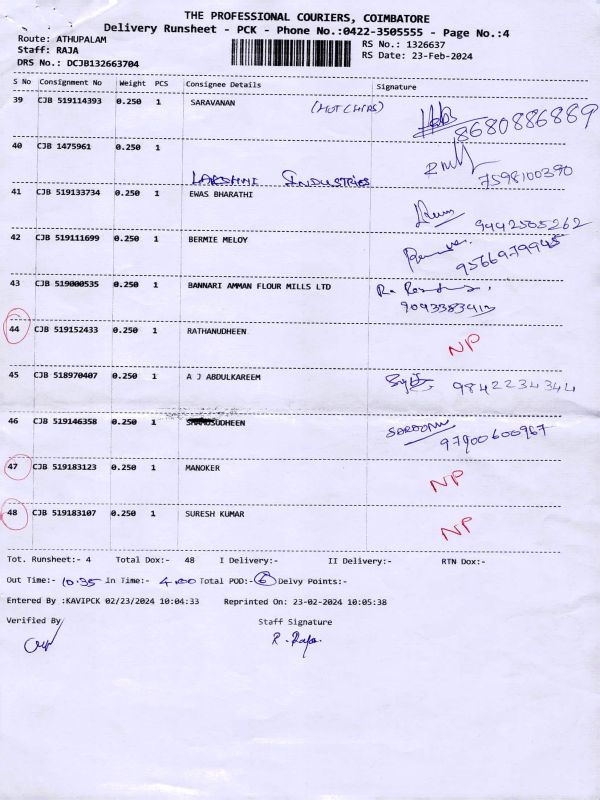 THE PROFESSIONAL COURIERS, COIMBATORE
Delivery Runsheet - PCK - Phone No.:0422-3505555 - Page No.:4
Route: ATHUPALAM RS No.: 1326637
Staff: RAJA RS Date: 23-Feb-2024
DRS No.: DCJB132663704
S No Consignment No Weight PCS Consignee Details Signature
39 CJB 519114393 0.250 1 SARAVANAN (HOT CHIPS)
8680886889
40 CJB 1475961 0.250 1
LAKSHMI INDUSTRIES 7598100390
41 CJB 519133734 0.250 1 EWAS BHARATHI
9442505262
42 CJB 519111699 0.250 1 BERMIE MELOY
9566979945
43 CJB 519000535 0.250 1 BANNARI AMMAN FLOUR MILLS LTD
44 CJB 519152433 0.250 1 RATHANUDHEEN NP
45 CJB 518970407 0.250 1 A J ABDULKAREEM 9842234344
46 CJB 519146358 0.250 1 SHAMSUDHEEN
97900600967
47 CJB 519183123 0.250 1 MANOKER NP
48 CJB 519183107 0.250 1 SURESH KUMAR NP
Tot. Runsheet:- 4 Total Dox:- 48 I Delivery:- II Delivery:- RTN Dox:-
Out Time:- 10.35 In Time:- 4.00 Total POD:- 6 Delvy Points:-
Entered By :KAVIPCK 02/23/2024 10:04:33 Reprinted On: 23-02-2024 10:05:38
Verified By Staff Signature
R. Raja